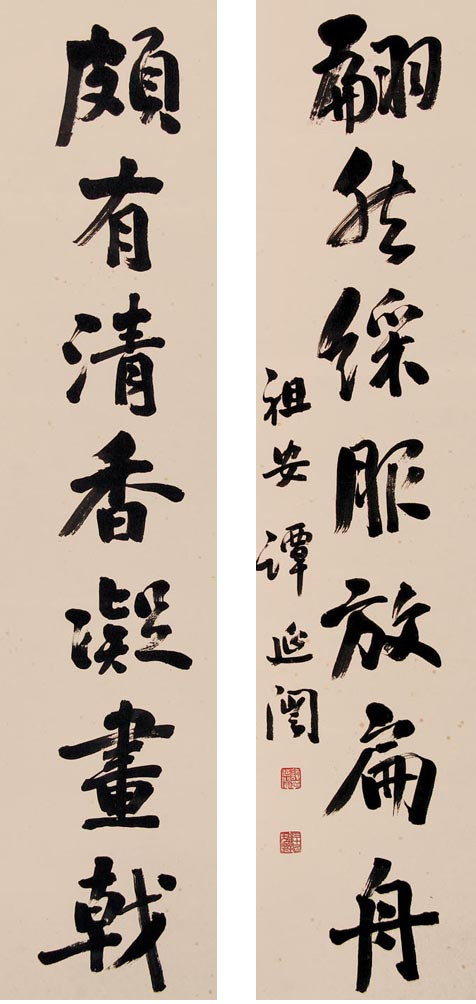 頗有清香凝畫戟
翩然綵服放扁舟
祖安譚延闓